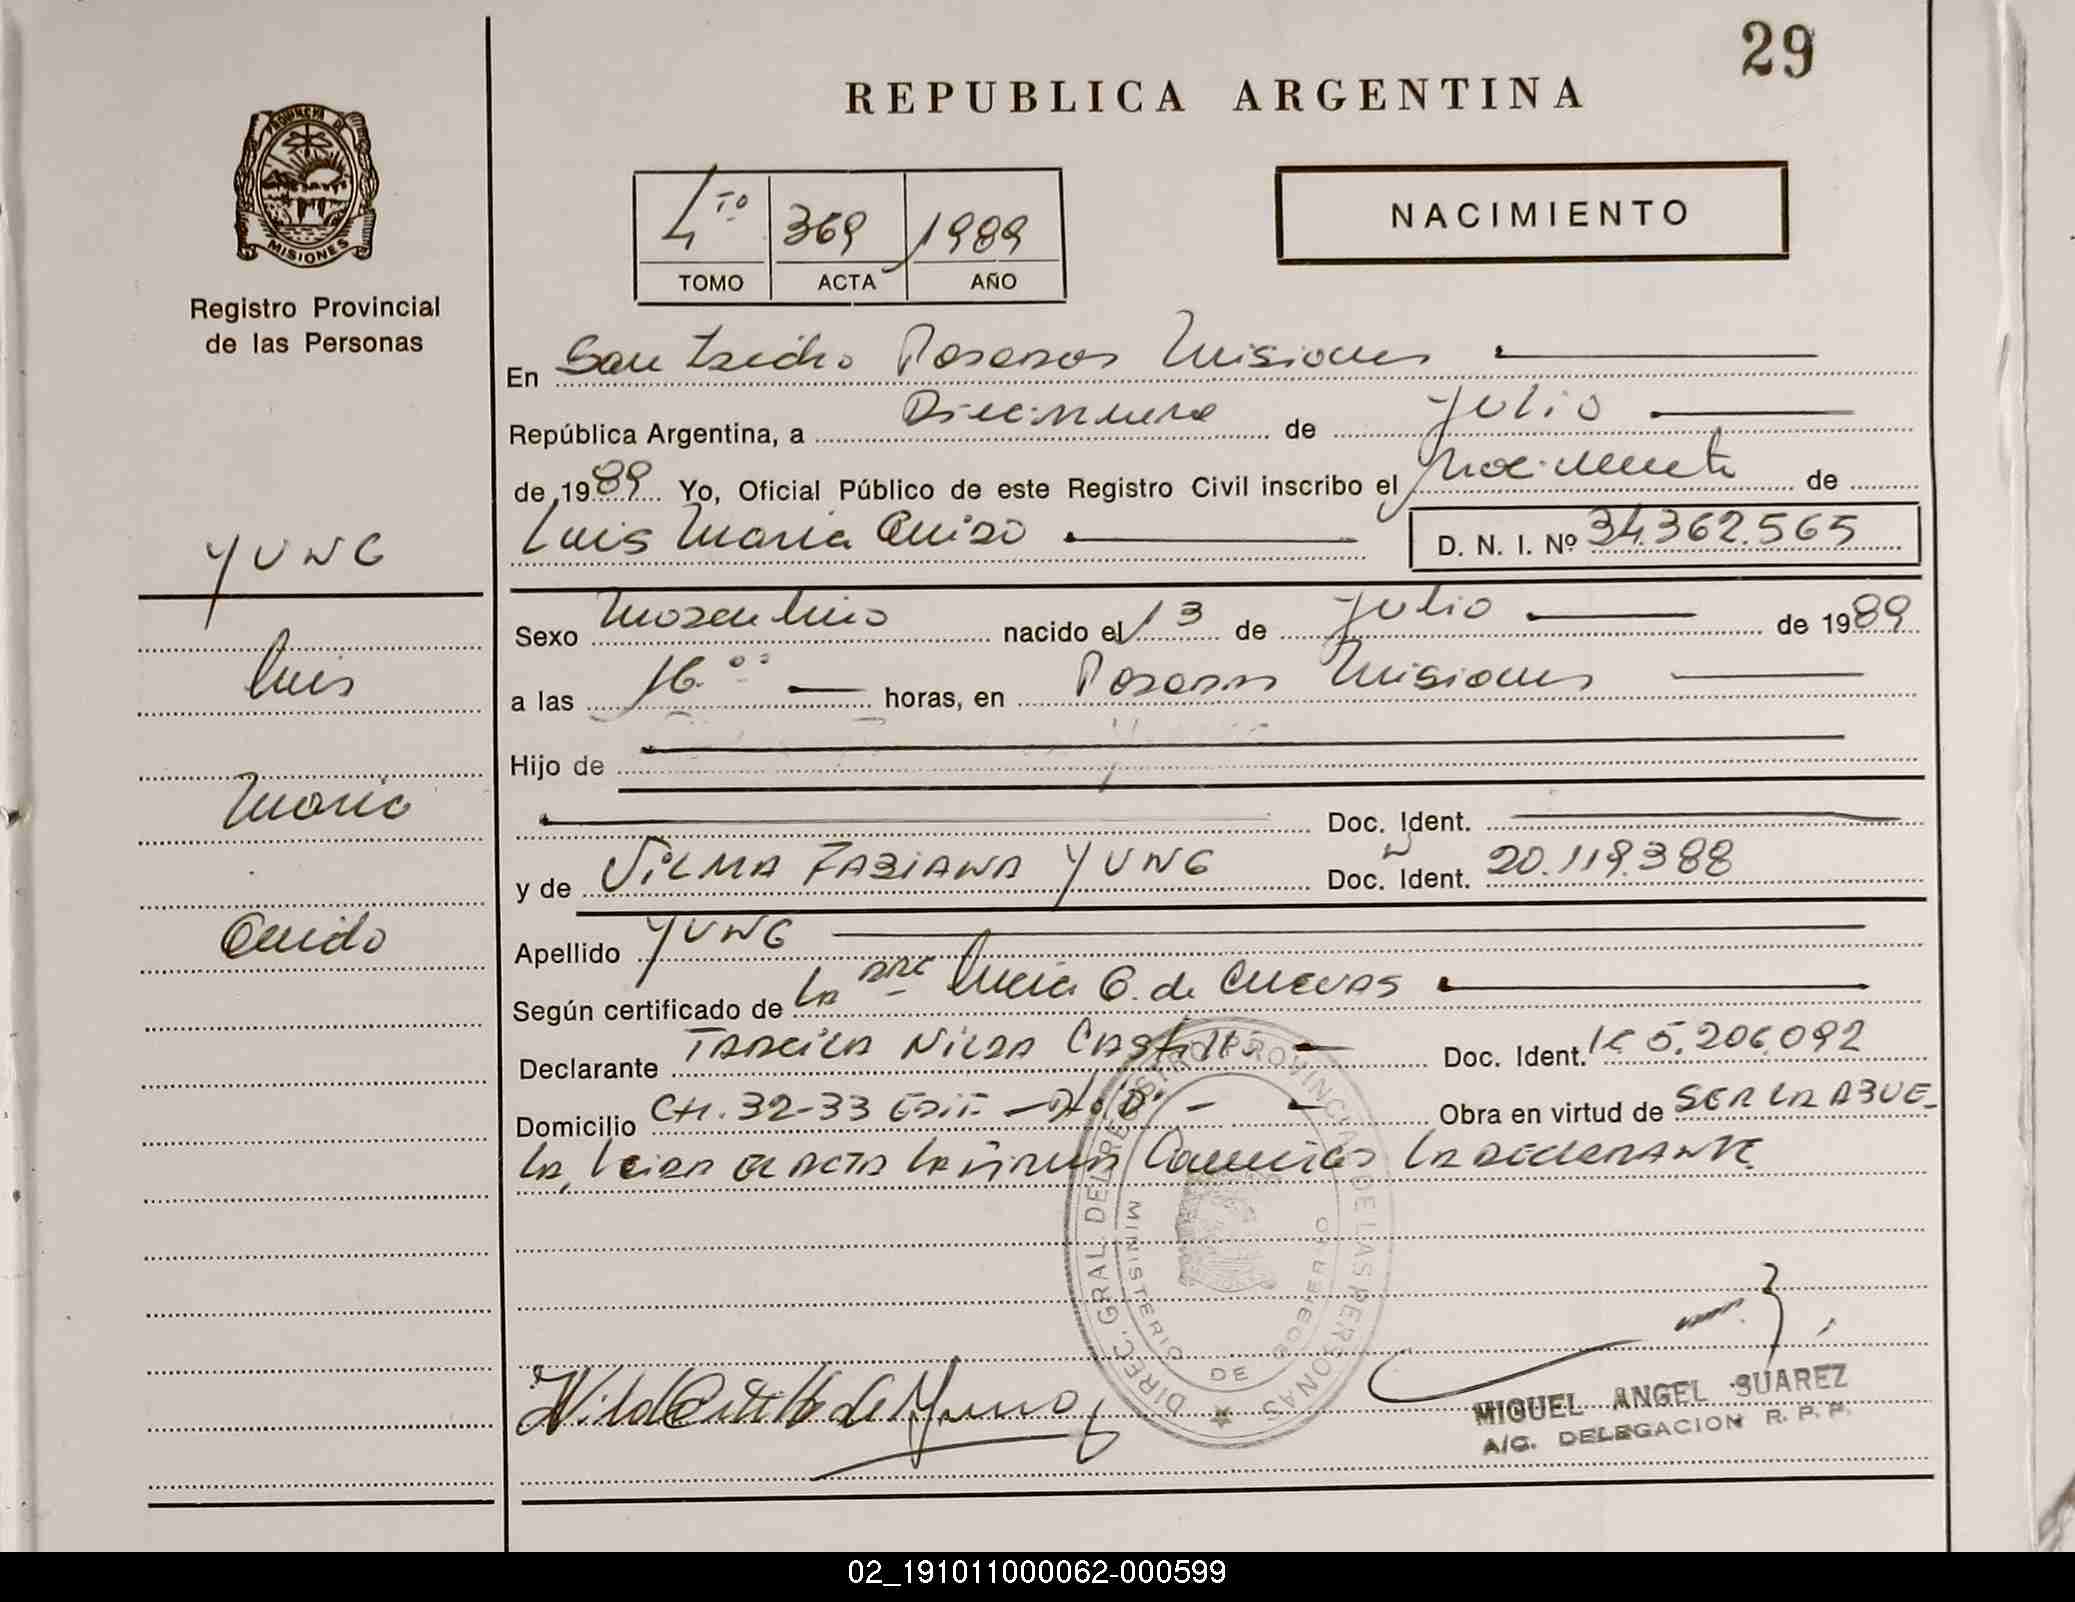 29
REPUBLICA ARGENTINA
PROVINCIA DE
MISIONES
Registro Provincial
de las Personas
4to 369 1989
TOMO ACTA AÑO
NACIMIENTO
En San Isidro Posadas Misiones
República Argentina, a Diecinueve de Julio
de 1989 Yo, Oficial Público de este Registro Civil inscribo el Nacimiento de
Luis Maria Guido D. N. I. Nº 34.362.565
YUNG
Luis
Maria
Guido
Sexo Masculino nacido el 13 de Julio de 1989
a las 16.00 horas, en Posadas Misiones
Hijo de
Doc. Ident.
y de Silma Fabiana YUNG Doc. Ident. 20.119.388
Apellido YUNG
Según certificado de La Lucia G. de Cuevas
Declarante Tarcila Nilda Castillo Doc. Ident. 5.206.092
Domicilio CH. 32-33 Edif. Obra en virtud de SER LA ABUE-
LA, Leida el acta la firma Conmigo LA DECLARANTE
DIREC. GRAL. DEL REGISTRO PROVINCIAL DE LAS PERSONAS
MINISTERIO DE GOBIERNO
MIGUEL ANGEL SUAREZ
A/C. DELEGACION R. P. P.
02_191011000062-000599